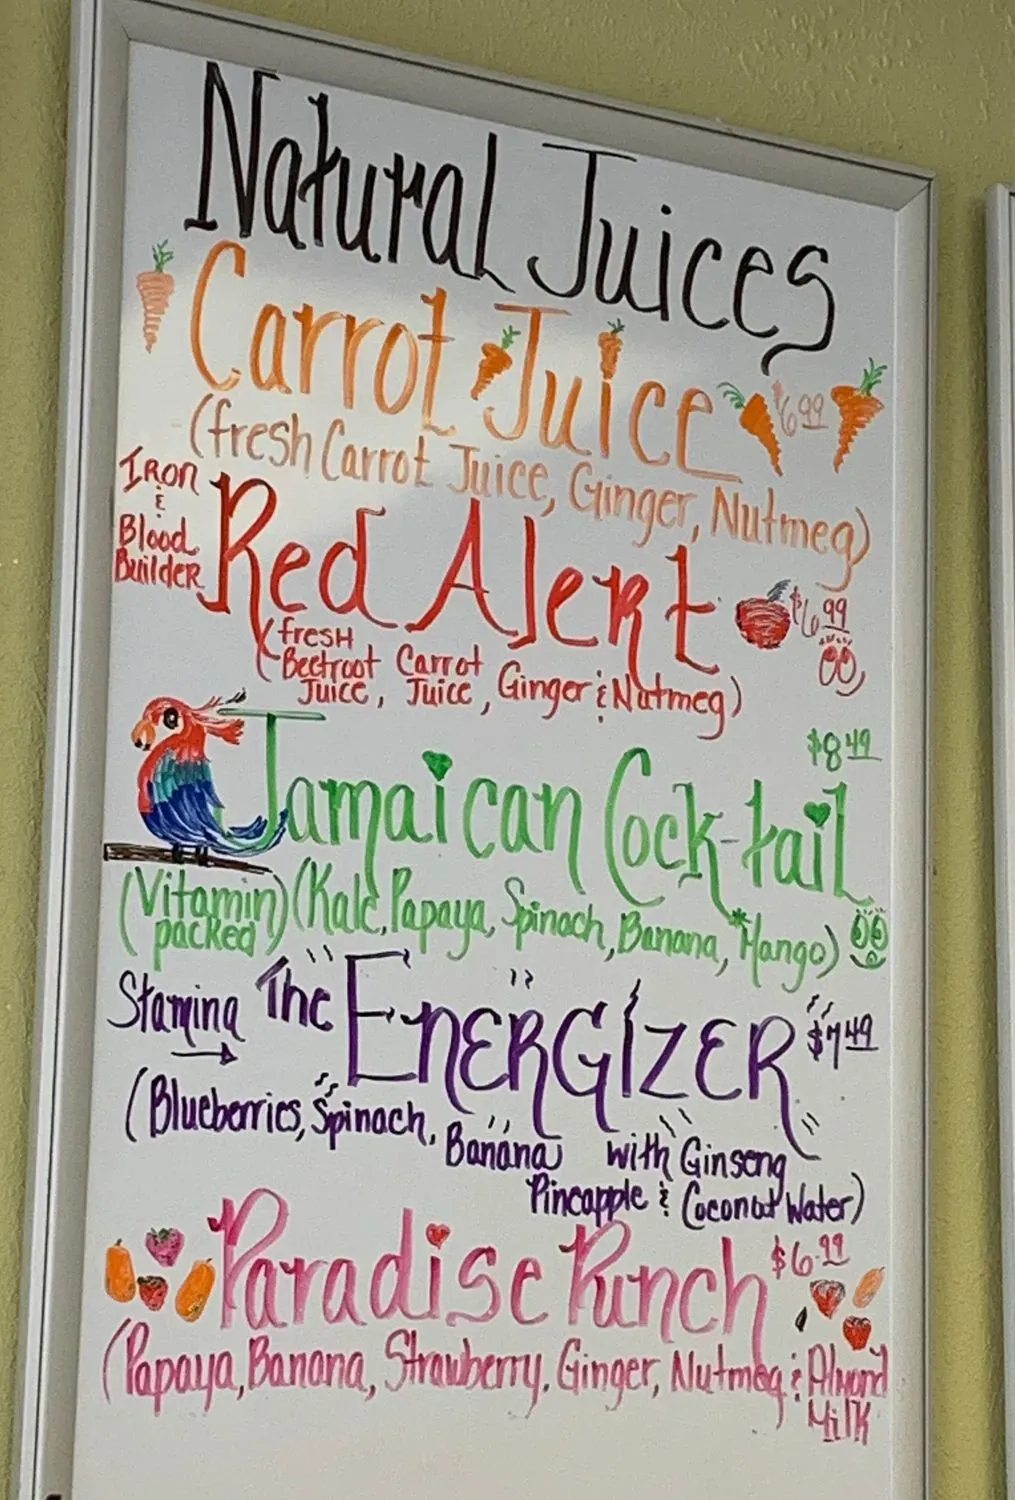 Natural Juices
Carrot Juice $6.99
(fresh Carrot Juice, Ginger, Nutmeg)
Iron
&
Blood
Builder
Red Alert $6.99
(fresh
Beetroot Carrot
Juice, Juice, Ginger & Nutmeg)
$8.49
Jamaican Cock-tail
(Vitamin
packed)
(Kale, Papaya, Spinach, Banana, *Mango)
Stamina The ENERGIZER $7.49
(Blueberries, Spinach, Banana with Ginseng
Pineapple & Coconut Water)
Paradise Punch $6.99
(Papaya, Banana, Strawberry, Ginger, Nutmeg & Almond
Milk